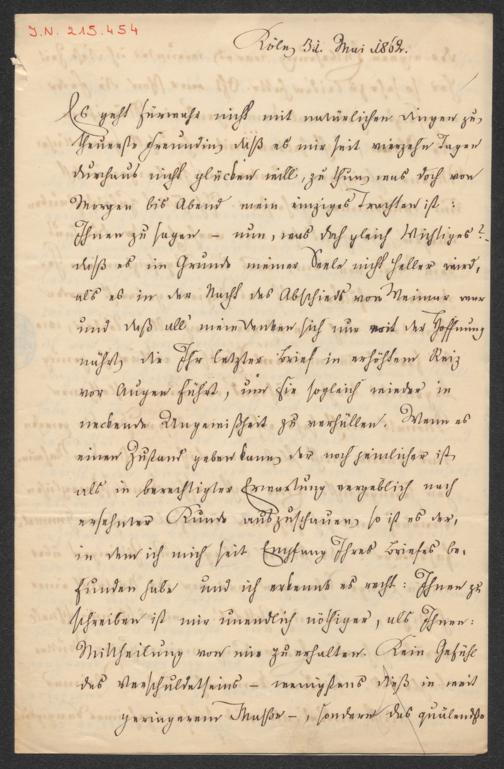 J.N. 215.454
Köln, 31. Mai 1862.
Es geht fürwahr nicht mit natürlichen Dingen zu,
theuerste Freundin, daß es mir seit vierzehn Tagen
durchaus nicht glücken will, zu thun, was doch von
Morgen bis Abend mein einziges Trachten ist:
Ihnen zu sagen – nun, was doch gleich Wichtiges? –
daß es im Grunde meiner Seele nicht heller wird,
als es in der Nacht des Abschieds von Weimar war
und daß all' mein Denken sich nur mit der Hoffnung
nährt, die Ihr letzter Brief in erhöhtem Reiz
vor Augen führt, um sie sogleich wieder in
neckende Ungewißheit zu verhüllen. Wenn es
einen Zustand geben kann, der noch peinlicher ist,
als in berechtigter Erwartung vergeblich nach
ersehnter Kunde auszuschauen, so ist es der,
in dem ich mich seit Empfang Ihres Briefes be-
funden habe und ich erkenne es recht: Ihnen zu
schreiben ist mir unendlich nöthiger, als Ihnen:
Mittheilung von mir zu erhalten. Kein Gefühl
des Verschuldetseins – wenigstens dieß in weit
geringerem Maße –, sondern das quälendste